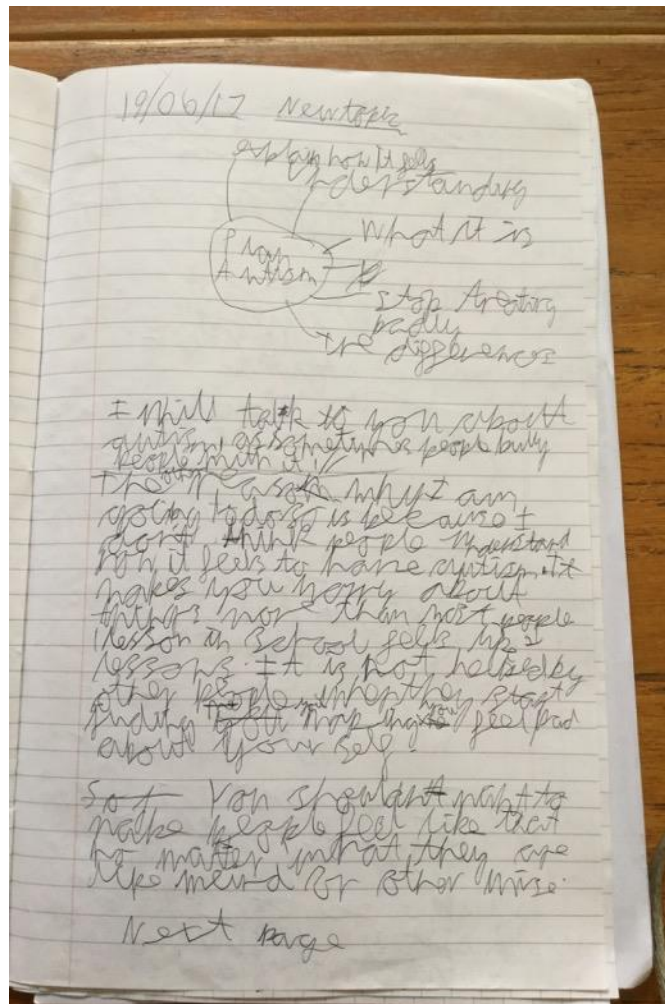 19/06/17 New topic
explain how it feels
understanding
What it is
Plan
Autism
stop treating
badly
the differences
I will talk to you about
autism, as sometimes people bully
people with it.
The reason why I am
going to do so is because I
don't think people understand
how it feels to have autism. It
makes you worry about
things more than most people
1 lesson in school feels like
lessons. It is not helped by
other people when they start
making you feel bad
about your self.
So You shouldn't want to
make people feel like that
no matter what they are
like weird or other wise.
Next page